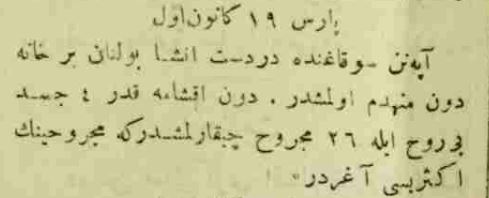 پارس ١٩ كانون اول
آپه‌نن سوقاغنده دردست انشا بولنان بر خانه
دون منهدم اولمشدر . دون اقشامه قدر ٤ جسد
بی‌روح ایله ٢٦ مجروح چیقارلمشدركه مجروحینك
اكثریسی آغردر